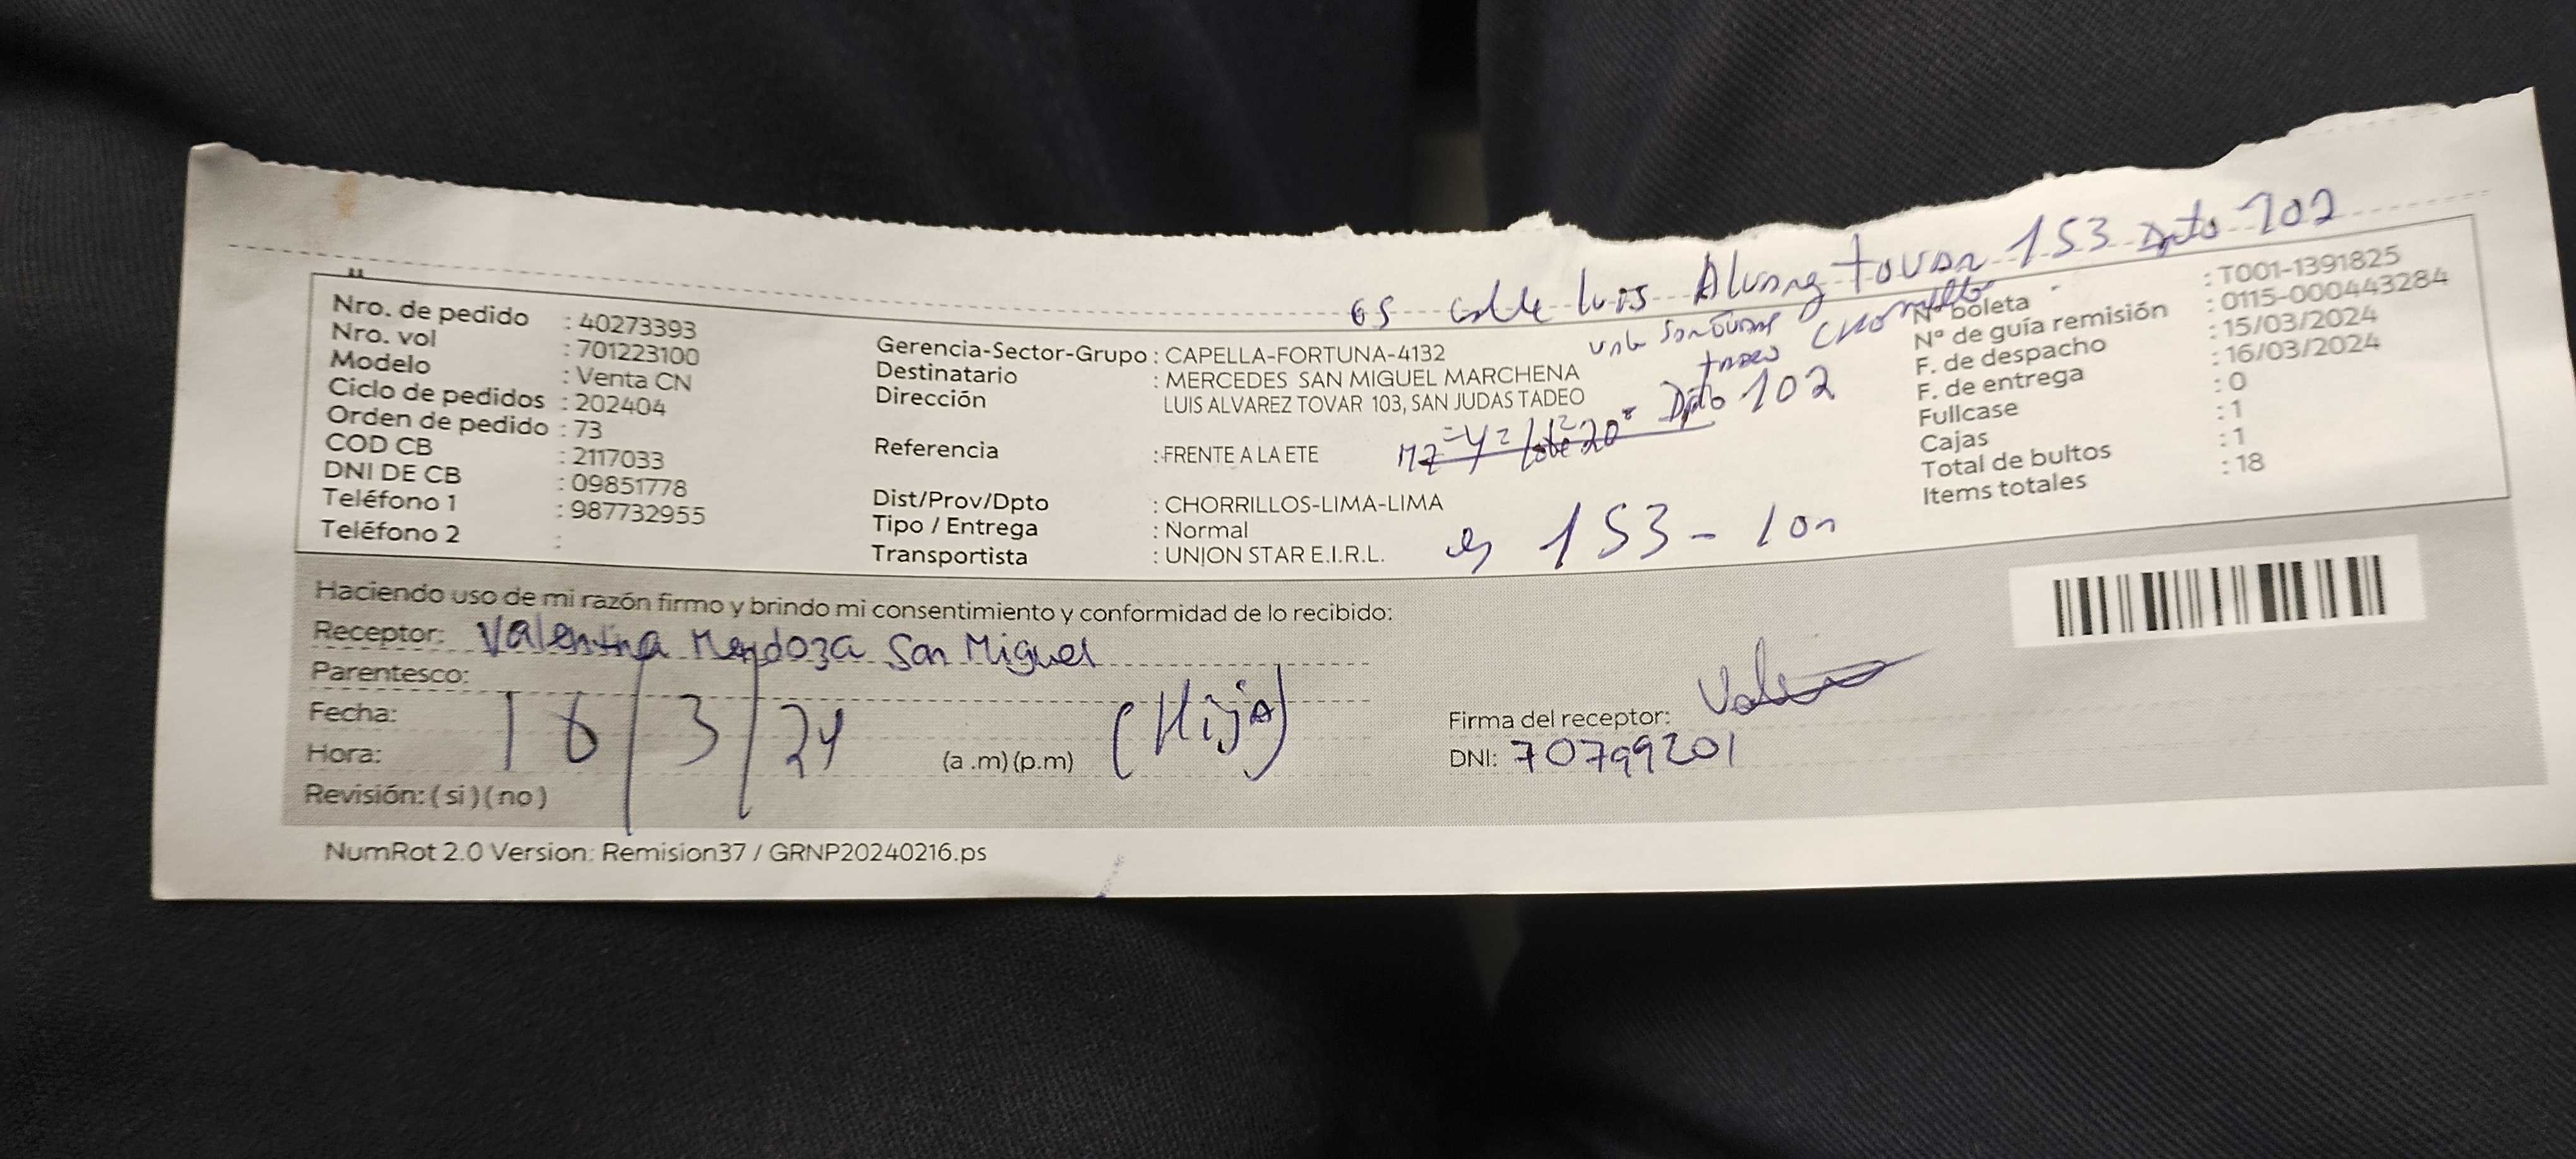 es calle luis Alvarez tovar 153 Dpto 102
Urb San Judas tadeo Chorrillos
Nro. de pedido : 40273393
Nro. vol : 701223100
Modelo : Venta CN
Ciclo de pedidos : 202404
Orden de pedido : 73
COD CB : 2117033
DNI DE CB : 09851778
Teléfono 1 : 987732955
Teléfono 2 :
Gerencia-Sector-Grupo : CAPELLA-FORTUNA-4132
Destinatario : MERCEDES SAN MIGUEL MARCHENA
Dirección LUIS ALVAREZ TOVAR 103, SAN JUDAS TADEO
Dpto 102
Referencia : FRENTE A LA ETE
Mz = Y = lote 20
Dist/Prov/Dpto : CHORRILLOS-LIMA-LIMA
Tipo / Entrega : Normal
Transportista : UNION STAR E.I.R.L.
es 153 - 102
N° boleta : T001-1391825
N° de guía remisión : 0115-000443284
F. de despacho : 15/03/2024
F. de entrega : 16/03/2024
Fullcase : 0
Cajas : 1
Total de bultos : 1
Items totales : 18
Haciendo uso de mi razón firmo y brindo mi consentimiento y conformidad de lo recibido:
Receptor: Valentina Mendoza San Miguel
Parentesco: (Hija)
Fecha: 16/3/24
Hora: (a .m) (p.m)
Revisión: ( si ) ( no )
Firma del receptor:
DNI: 70799201
NumRot 2.0 Version: Remision37 / GRNP20240216.ps